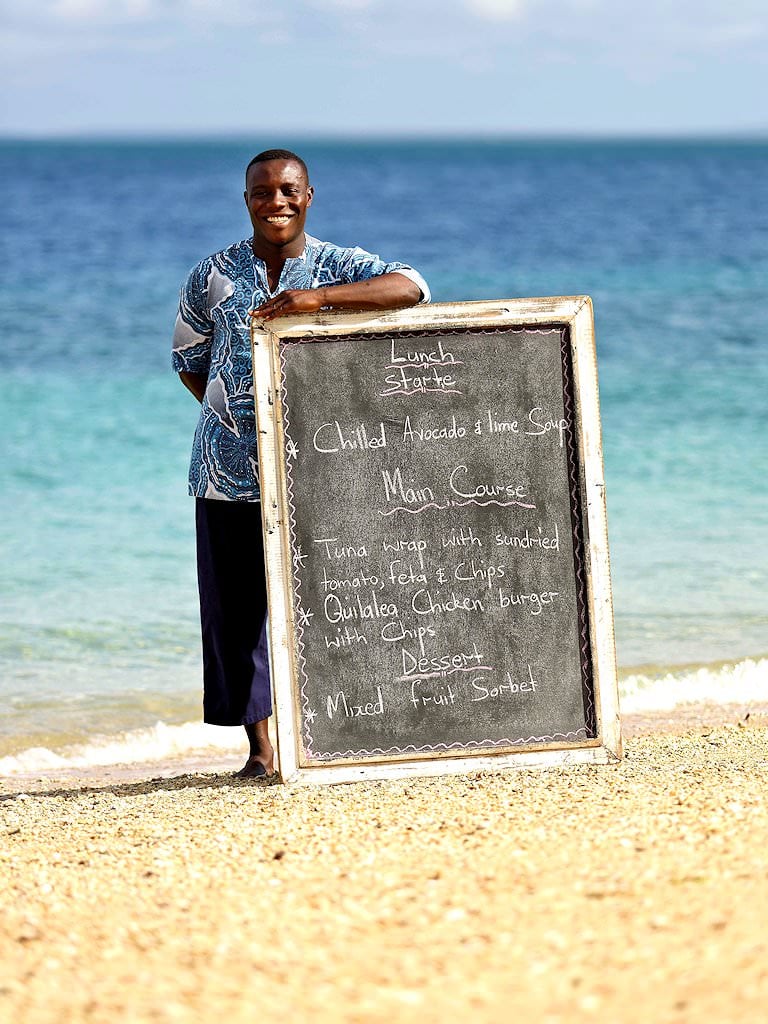 Lunch
starte
* Chilled Avocado & lime Soup
Main Course
* Tuna wrap with sundried
tomato, feta & Chips
* Quilalea Chicken burger
with Chips
Dessert
* Mixed fruit Sorbet